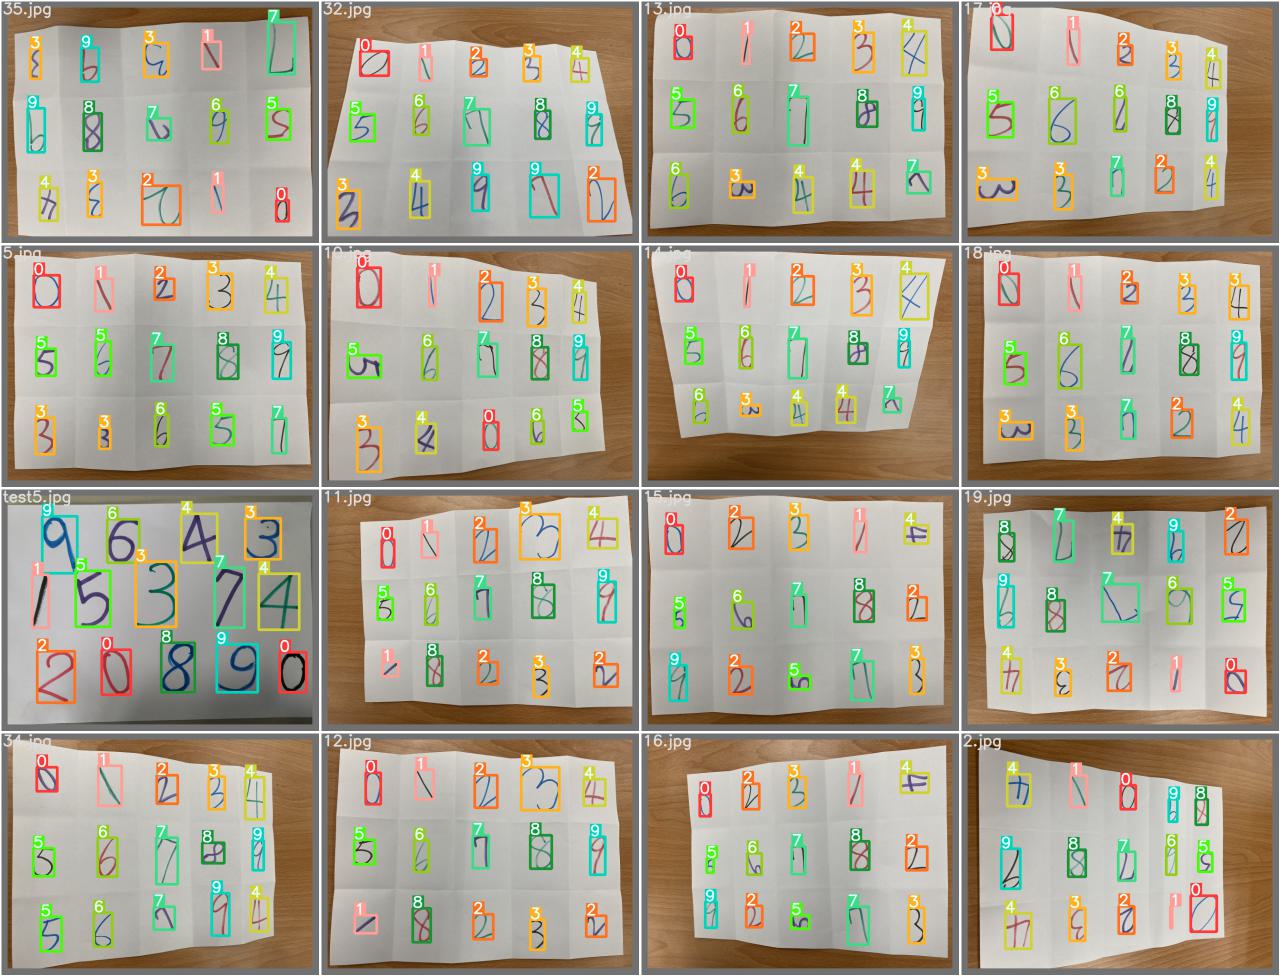 35.jpg
3 9 3 1 7
9 8 7 6 5
4 3 2 1 0
32.jpg
0 1 2 3 4
5 6 7 8 9
3 4 9 9 2
13.jpg
0 1 2 3 4
5 6 7 8 9
6 3 4 4 7
0 1 2 3 4
5 6 6 8 9
3 3 7 2 4
5.jpg
0 1 2 3 4
5 5 7 8 9
3 3 6 5 7
10.jpg
0 1 2 3 4
5 6 7 8 9
3 4 0 6 5
14.jpg
0 1 2 3 4
5 6 7 8 9
6 3 4 4 7
18.jpg
0 1 2 3 3
5 6 7 8 9
3 3 7 2 4
test5.jpg
9 6 4 3
1 5 3 7 4
2 0 8 9 0
11.jpg
0 1 2 3 4
5 6 7 8 9
1 8 2 3 2
15.jpg
0 2 3 1 4
5 6 7 8 2
9 2 5 7 3
19.jpg
8 7 4 9 2
9 8 7 6 5
4 3 2 1 0
34.jpg
0 1 2 3 4
5 6 7 8 9
5 6 7 9 4
12.jpg
0 1 2 3 4
5 6 7 8 9
1 8 2 3 2
16.jpg
0 2 3 1 4
5 6 7 8 2
9 2 5 7 3
2.jpg
4 1 0 9 8
9 8 7 6 5
4 3 2 1 0